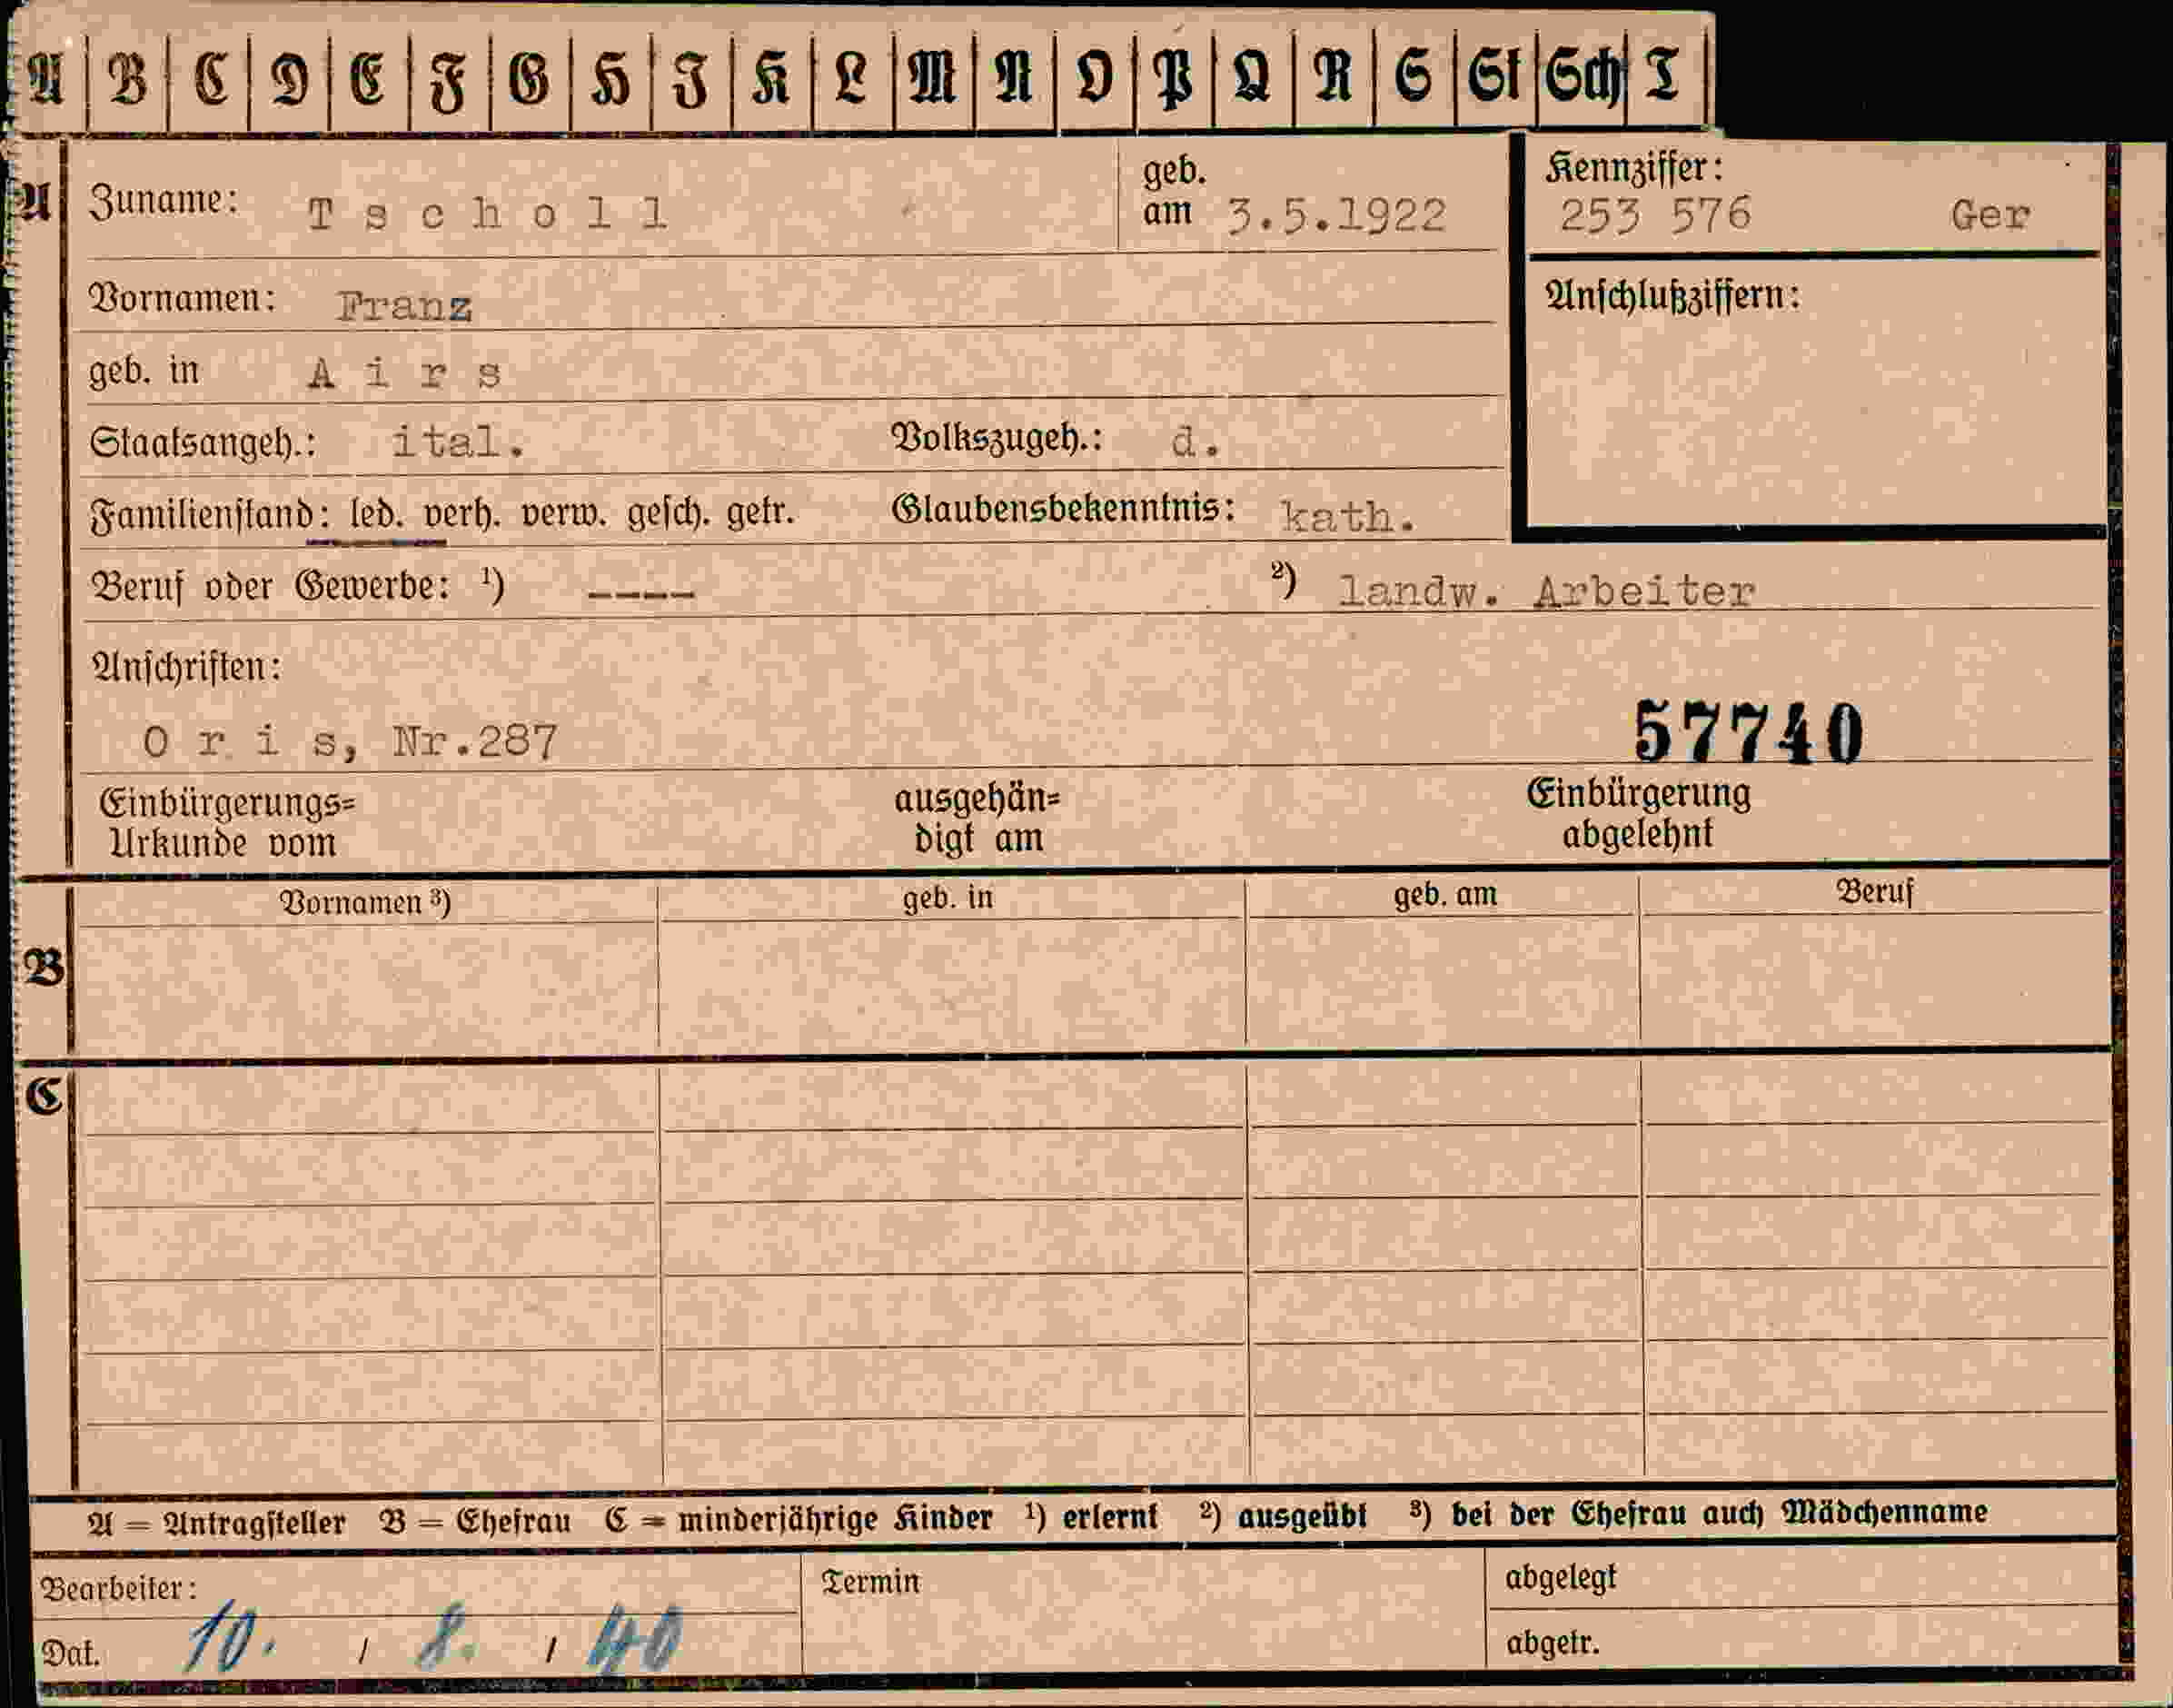 A B C D E F G H I K L M N O P Q R S St Sch T
A
Zuname: Tscholl geb. am 3.5.1922
Kennziffer: 253 576 Ger
Vornamen: Franz
Anschlußziffern:
geb. in Airs
Staatsangeh.: ital. Volkszugeh.: d.
Familienstand: led. verh. verw. gesch. getr. Glaubensbekenntnis: kath.
Beruf oder Gewerbe: ¹) ---- ²) landw. Arbeiter
Anschriften:
Oris, Nr.287 57740
Einbürgerungs= ausgehän= Einbürgerung
Urkunde vom digt am abgelehnt
Vornamen ³) geb. in geb. am Beruf
B
C
A = Antragsteller B = Ehefrau C = minderjährige Kinder ¹) erlernt ²) ausgeübt ³) bei der Ehefrau auch Mädchenname
Bearbeiter: Termin abgelegt
Dat. 10. / 8. / 40 abgetr.